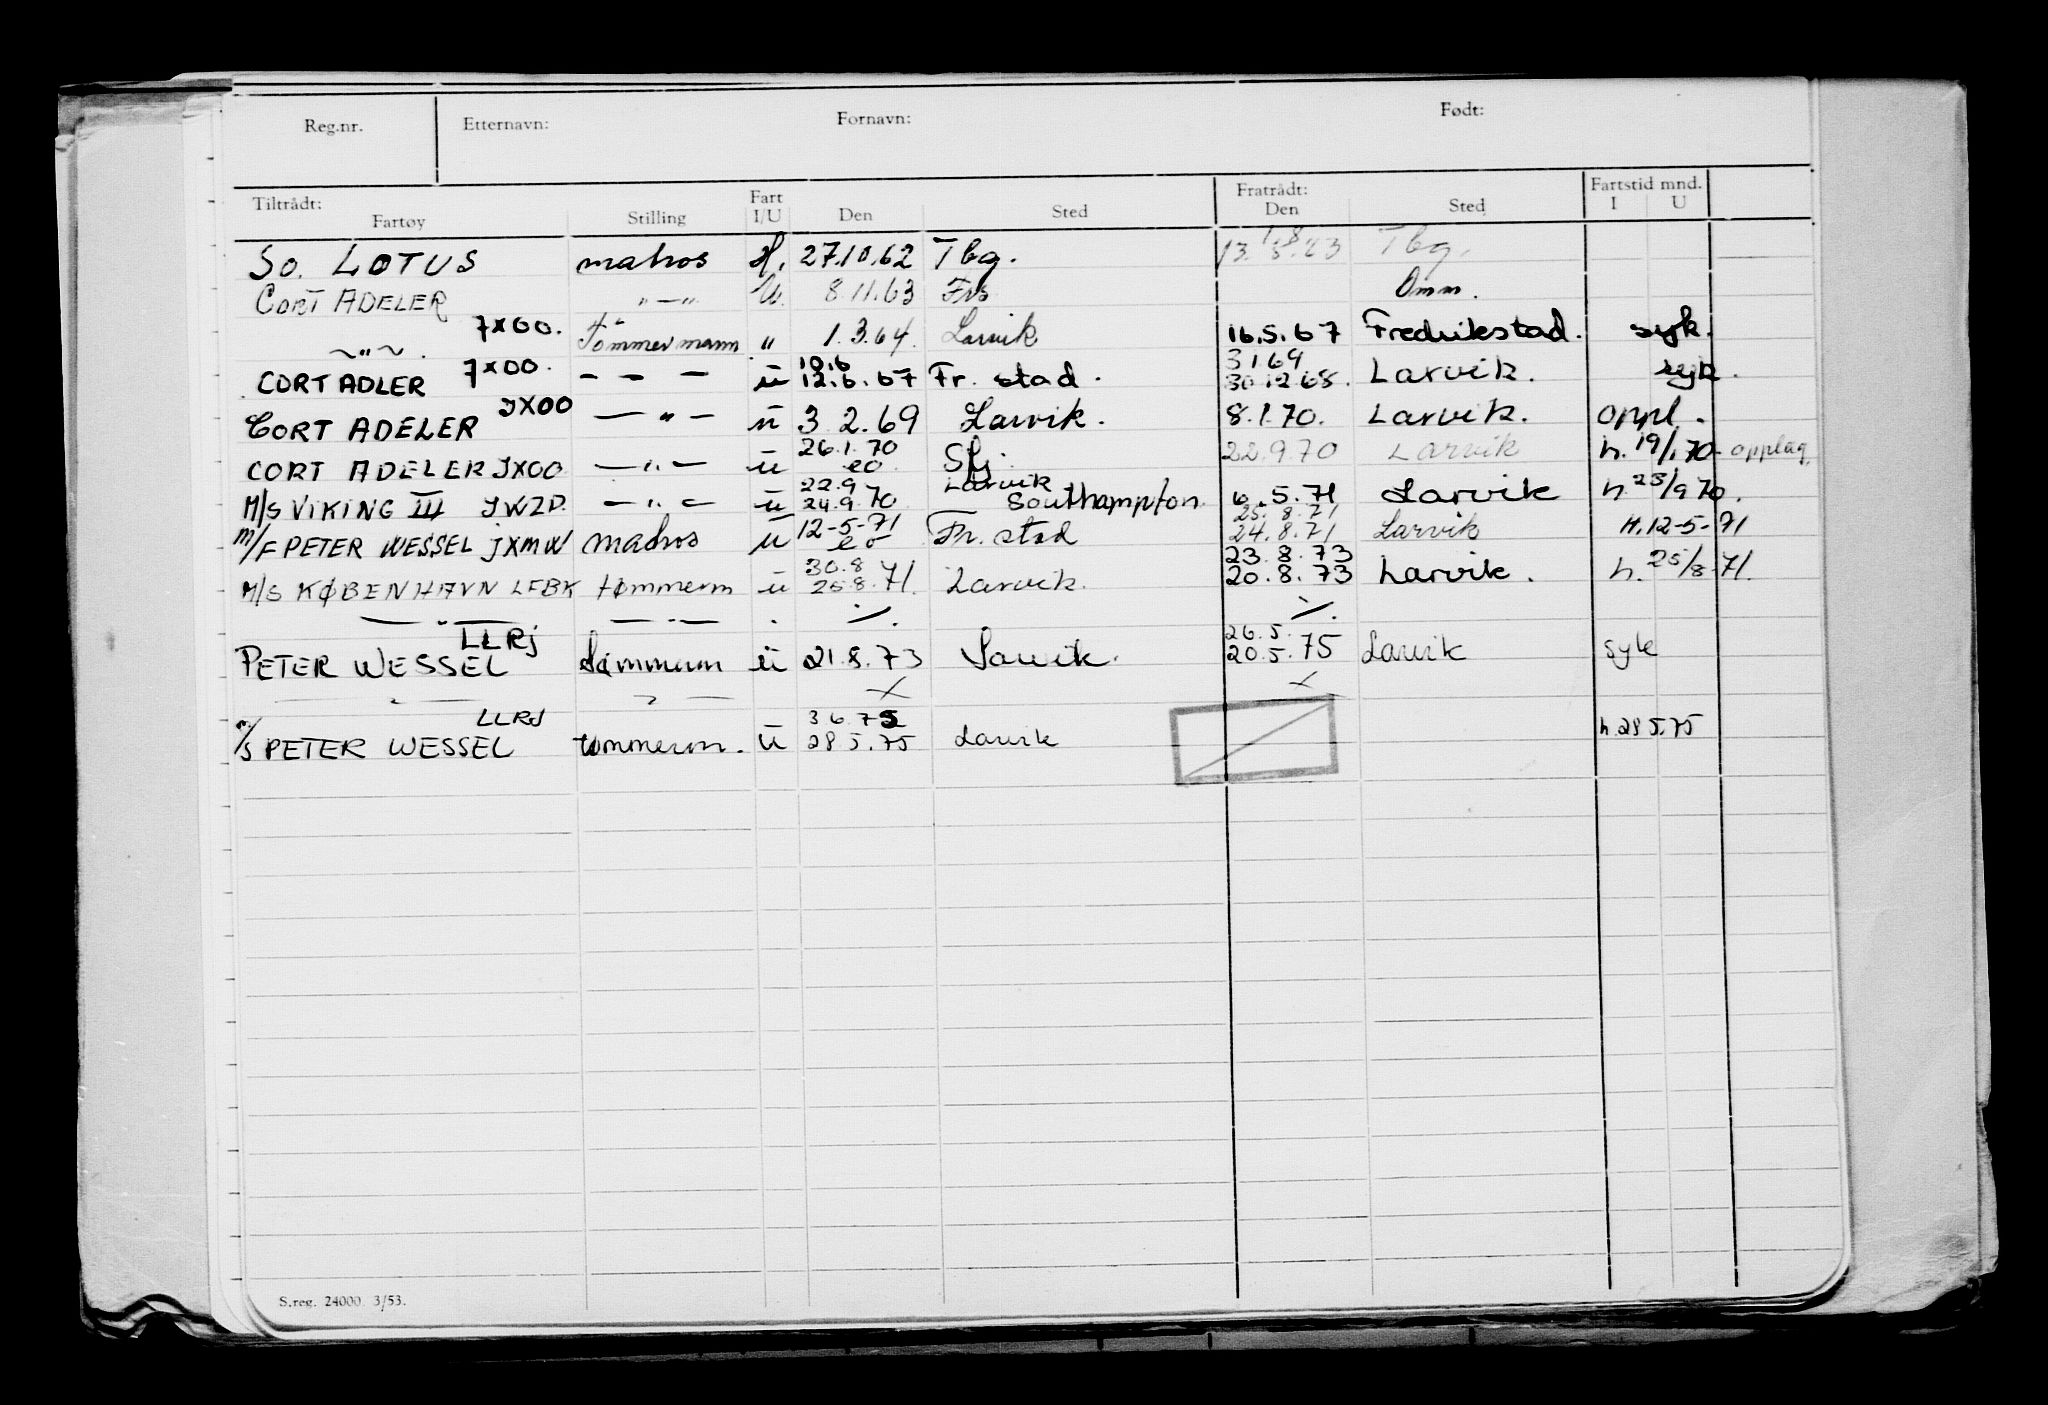 Reg.nr. Etternavn: Fornavn: Født:
Tiltrådt: Fartøy Stilling Fart I/U Den Sted Fratrådt: Den Sted Fartstid mnd. I U
So. LOTUS matros H. 27.10.62 Tbg. 13.8.63 Tbg.
CORT ADELER "—" U. 8.11.63 Frs Omm.
~"~. JXOO. Tømmermann " 1.3.64. Larvik 16.5.67 Fredrikstad. syk.
10.6 3169
CORT ADLER JXOO. — — — ü 12.6.67 Fr. stad. 30.12.68. Larvik. syk.
CORT ADELER JXOO — " — ü 3.2.69 Larvik. 8.1.70. Larvik. oppl.
26.1.70
CORT ADELER JXOO — " — ü eo. Sfj. 22.9.70 Larvik h. 19/1.70 - opplag.
22.9 Larvik
M/S VIKING III JWZD. — " — ü 24.9.70 Southampton. 6.5.71 Larvik h. 23/9 70.
12-5-71 25.8.71
m/F PETER WESSEL JXMW matros u eo Fr. stad 24.8.71 Larvik H. 12-5-71
30.8 23.8.73
M/S KØBENHAVN LFBK tømmerm ü 25.8.71. Larvik. 20.8.73 Larvik. h. 25/8.71.
— " — — " — . ·/. ·/.
LLRJ 26.5.
PETER WESSEL tømmerm ü 21.8.73 Larvik. 20.5.75 Larvik syk
— " — " — X X
LLRJ 3 6.75
M/S PETER WESSEL tømmerm. ü 28 5.75 Larvik h. 28 5.75
S.reg. 24000. 3/53.